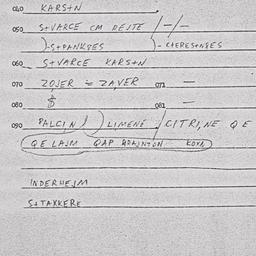 040 KARSTN
050 STVARCE CM DESTE /-/-
)-STPANKSES )- CHERESTNSES
060 STVARCE KARSTN
070 ZOJER = ZAVER 071 —
080 081 —
090 PALCIN ) LIMENE / CITRI, NE QE
(QE LAJM QAP KOXN)
INDERHEJM
STAKKERE